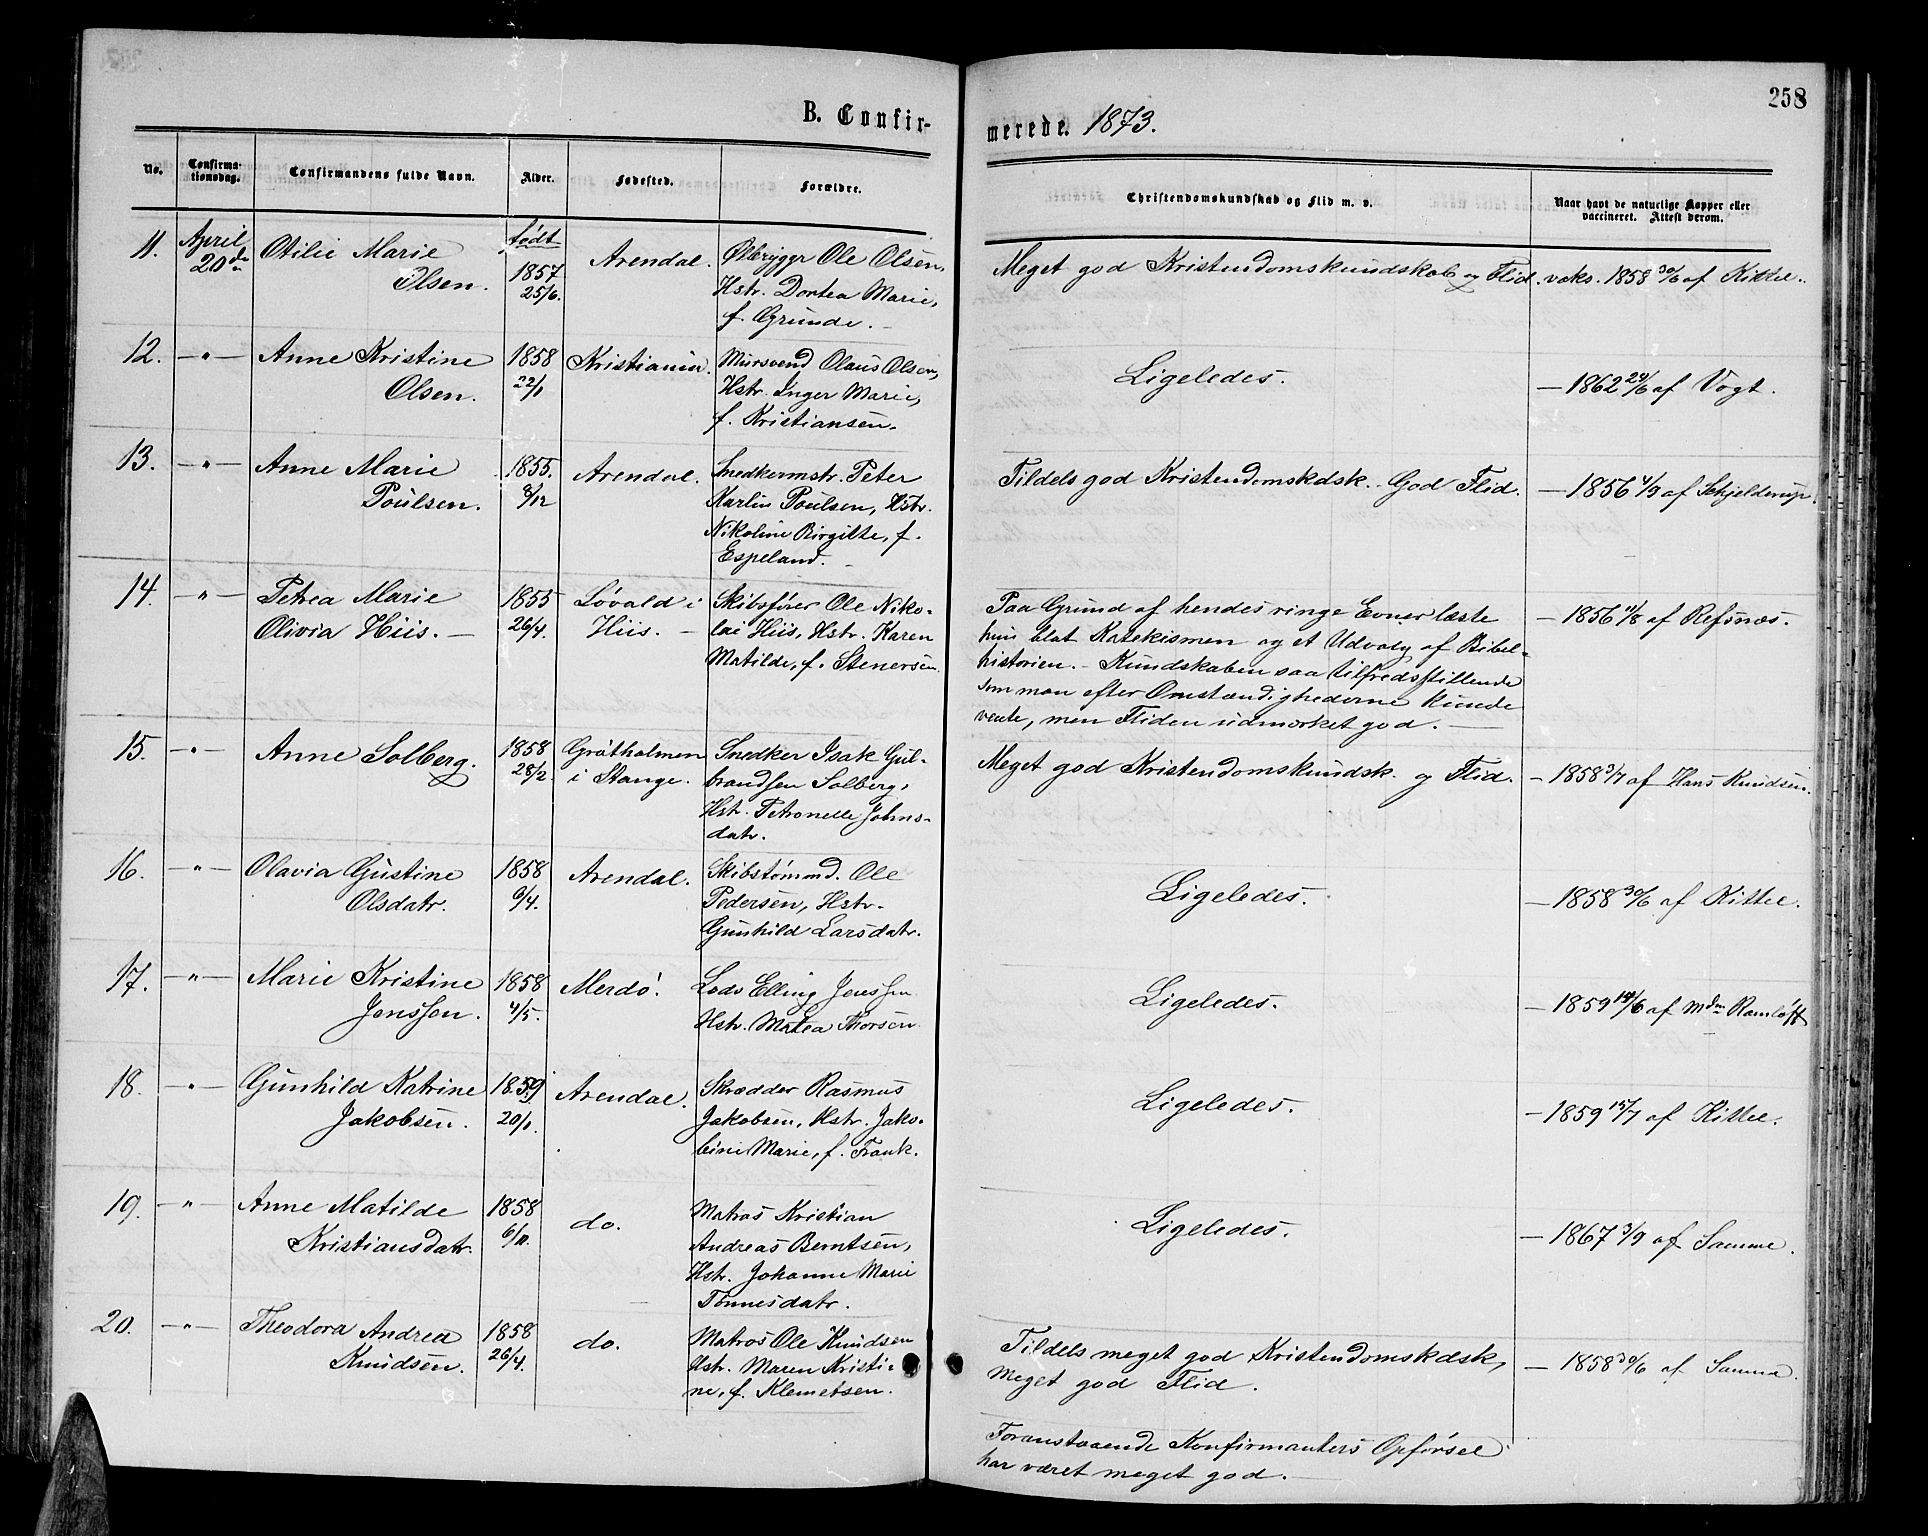 258
B. Confirmerede. 1873.
No. Confirmationsdag. Confirmandens fulde Navn. Alder. Fødested. Forældre. Christendomskundskab og Flid m. v. Naar havt de naturlige Kopper eller vaccineret. Attest derom.
11. April 20de Otilie Marie Olsen. født 1857 25/6. Arendal. Ølbrygger Ole Olsen,
Hstr. Dortea Marie,
f. Grunde.
Meget god Kristendomskundskab og Flid. vaks. 1858 30/6 af Kittel.
12. —"— Anne Kristine Olsen. 1858 22/1 Kristiania. Mursvend Olaus Olsen,
Hstr. Inger Marie,
f. Kristiansen.
Ligeledes. — 1862 24/6 af Vogt.
13. —"— Anne Marie Poulsen. 1855. 8/12 Arendal. Snedkermstr. Peter
Karlin Poulsen, Hstr.
Nikoline Birgitte, f.
Espeland.
Tildels god Kristendomskdsk. God Flid. — 1856 4/9 af Schjelderup.
14. —"— Petrea Marie Olivia Hiis. — 1855 26/4. Løvald i Hiis. — Skibsfører Ole Niko-
lai Hiis, Hstr. Karen
Matilde, f. Stenersen
Paa Grund af hendes ringe Evner læste
hun blot Katekismen og et Udvalg af Bibel-
historien. — Kundskaben saa tilfredsstillende
som man efter Omstændighederne kunde
vente, men Fliden udmærket god. —
— 1856 11/8 af Refsnæs.
15. —"— Anne Solberg. 1858 28/2 Gråtholmen i Stange. Snedker Isak Gul-
brandsen Solberg,
Hstr. Petronelle Johns-
datr.
Meget god Kristendomskundsk. og Flid. — 1858 3/7 af Hans Knudsen.
16. —"— Olavia Gustine Olsdatr. 1858 9/4. Arendal. Skibstømmd. Ole
Pedersen, Hstr.
Gunhild Larsdatr.
Ligeledes. — 1858 30/6 af Kittel.
17. —"— Marie Kristine Jenssen. 1858 4/5. Merdø. Lods Elling Jenssen
Hstr. Matea Thorsen.
Ligeledes. — 1859 14/6 af Mdm Ramløff
18. —"— Gunhild Katrine Jakobsen. 1859 20/1. Arendal. Skrædder Rasmus
Jakobsen, Hstr. Jako-
bine Marie, f. Frank.
Ligeledes. — 1859 15/7 af Kittel.
19. —"— Anne Matilde Kristiansdatr. 1858 6/11. do. Matros Kristian
Andreas Berntsen,
Hstr. Johanne Marie
Tønnesdatr.
Ligeledes. — 1867 3/9 af Samme.
20. —"— Theodora Andrea Knudsen. 1858 26/4. do. Matros Ole Knudsen
Hstr. Maren Kristi-
ne, f. Klemetsen.
Tildels meget god Kristendomskdsk,
meget god Flid.
— 1858 30/6 af Samme.
Foranstaaende Konfirmanters Opførsel
har været meget god. —